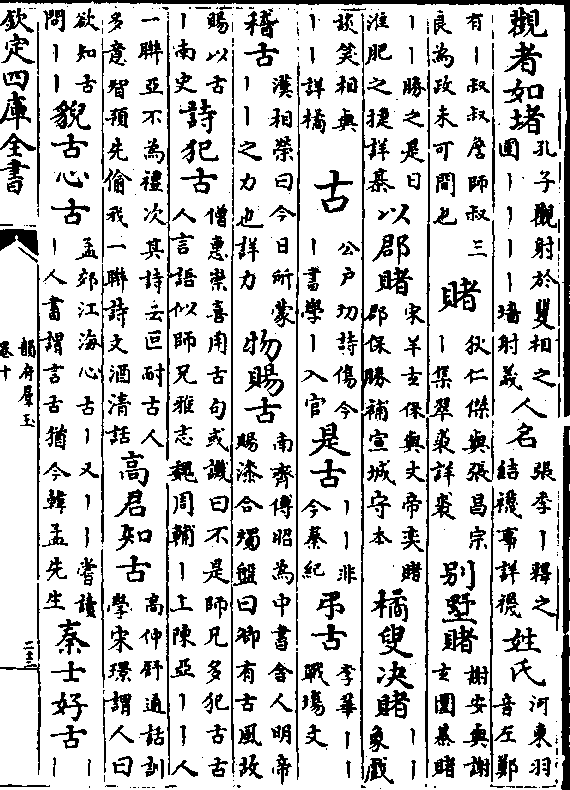 觀者如堵 孔子觀射於矍相之
圃丨丨丨丨墻射義 人名 張季丨釋之
結襪事詳襪 姓氏 河東羽
音左鄭
有丨叔叔詹師叔三
良為政未可間也 賭 狄仁傑與張昌宗
丨集翠裘詳裘 別墅賭 謝安與謝
玄圍棊賭
丨丨勝之是日
淮肥之捷詳棊 以郡賭 宋羊玄保與文帝奕賭
郡保勝補宣城守本 橘叟决賭 丨丨
象戲
談笑相與
丨丨詳橘 古 公戶切詩傷今
丨書學丨入官 是古 丨丨非
今秦紀 弔古 李華丨丨
戰塲文
稽古 漢桓榮曰今日所蒙
丨丨之力也詳力 物賜古 南齊傅昭為中書舍人明帝
賜漆合燭盤曰卿有古風故
賜以古
丨南史 詩犯古 僧惠崇喜用古句或譏曰不是師兄多犯古古
人言語似師兄雅志 魏周輔丨上陳亞丨丨人
一聯亞不為禮次其詩云叵耐古人
多意智預先偷我一聯詩文酒清話 高君知古 高仲舒通話訓
學宋璟謂人曰
欲知古
問丨丨 貌古心古 孟郊江海心古丨又丨丨丨嘗讀
丨人書謂言古猶今韓孟先生 秦士好古 丨
丨
欽定四庫全書
韻府羣玉
卷十